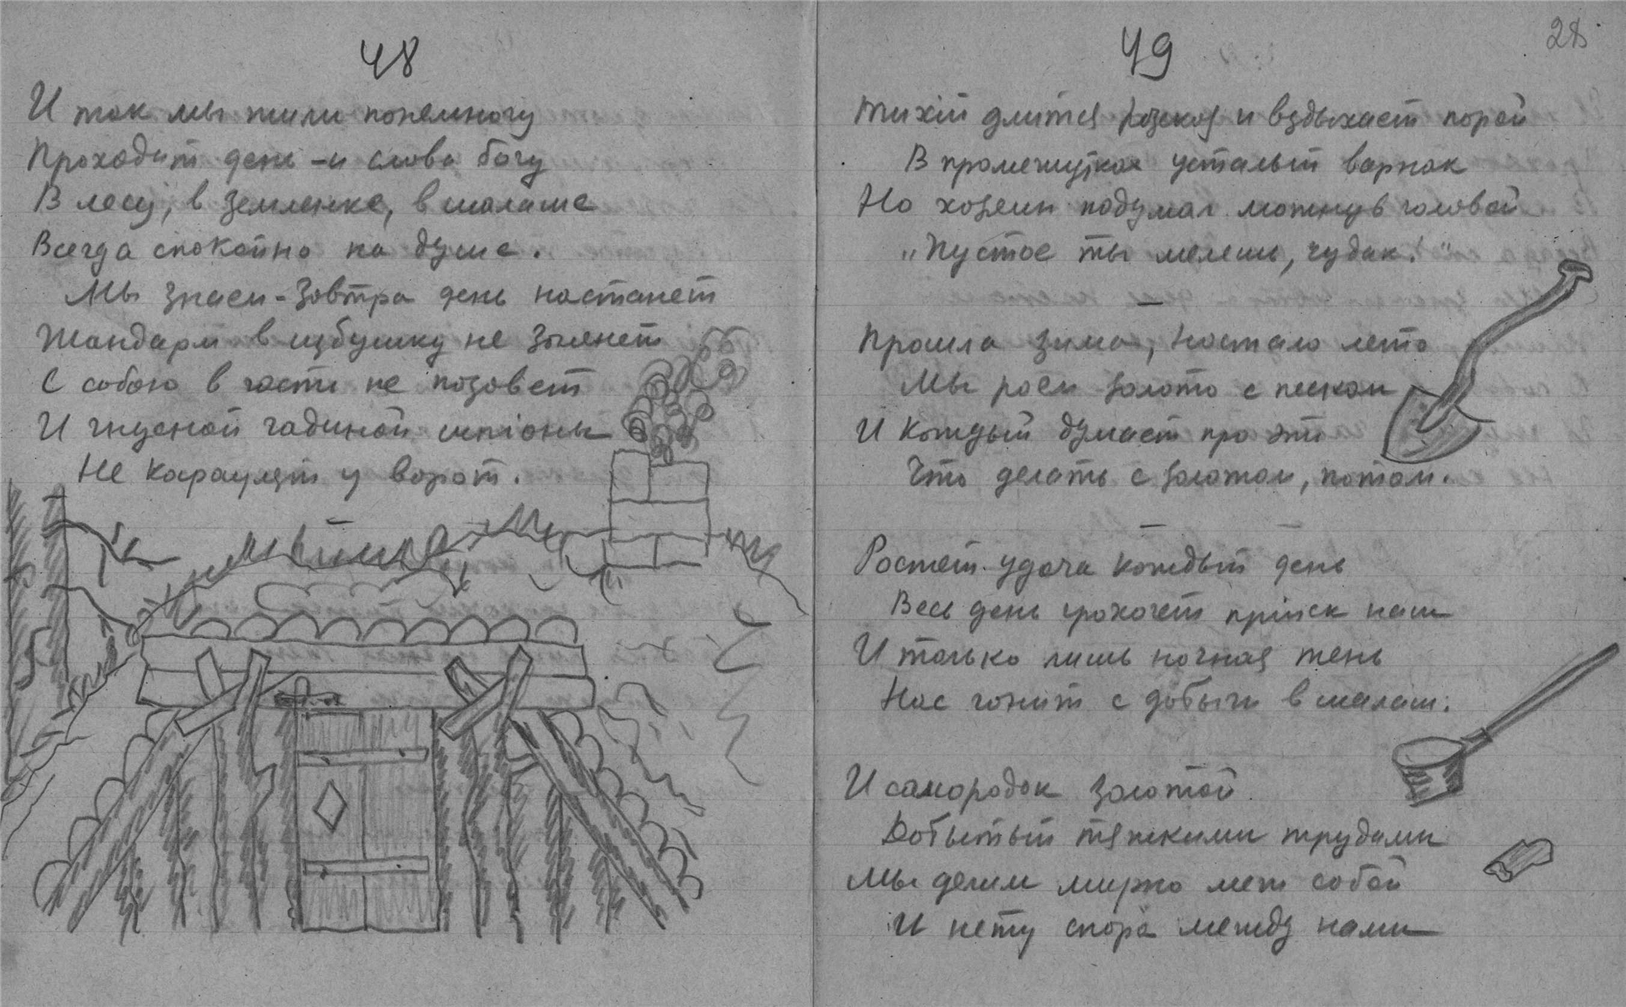 48
И так мы жили понемногу
Проходит день – и слава богу
В лесу, в землянке, в шалаше
Всегда спокойно на душе.
Мы знаем – завтра день настанет
Жандарм в избушку не заглянет
С собою в гости не позовет
И гнусной гадиной шпіоны
Не караулят у ворот.
49
28
Тихій длится розсказ и вздыхает порой
В промежутках усталый варнак
Но хозяин подумал мотнув головой
„Пустое ты мелешь, чудак!“
—
Прошла зима, настало лето
Мы роем золото с песком
И каждый думает про это
Что делать с золотом, потом.
—
Ростет удача каждый день
Весь день грохочет пріиск наш
И только лишь ночная тень
Нас гонит с добычи в шалаш.
И самородок золотой
Добытый тяжкими трудами
Мы делим мирно меж собой
И нету спора между нами